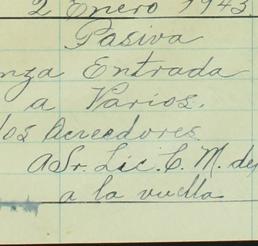 2 Enero 1943
Pasiva
nza Entrada
a Varios.
los Acreedores
A Sr. Lic. C. M. de
a la vuelta